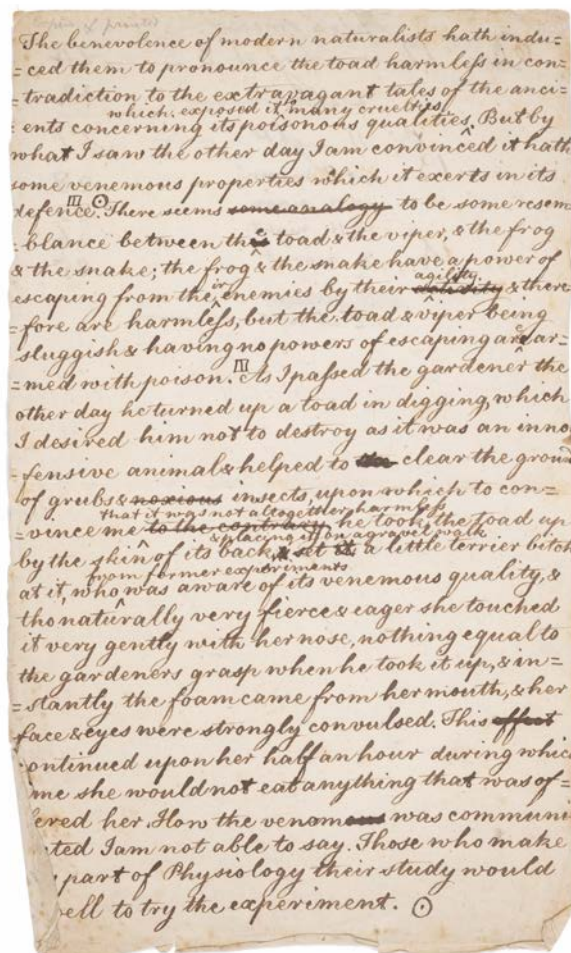 Copied & printed
The benevolence of modern naturalists hath indu=
=ced them to pronounce the toad harmleſs in con=
=tradiction to the extravagant tales of the anci=
which exposed it ^ many cruelties
=ents concerning its poisonous qualities. But by
what I saw the other day I am convinced it hath
some venemous properties which it exerts in its
defence. III ⊙ There seems some analogy to be some resem
=blance between the toad & the viper, & the frog
& the snake; the frog ^ & the snake have a power of
agility
escaping from their enemies by their activity & there
=fore are harmleſs, but the toad & viper being
sluggish & having no powers of escaping are ar=
=med with poison. III As I paſsed the gardener the
other day he turned up a toad in digging, which
I desired him not to destroy as it was an inno
=fensive animal & helped to clear the ground
of grubs & noxious insects, upon which to con=
that it was not altogether harmleſs
=vince me to the contrary, he took the toad up
& placing it on a gravel walk
by the skin of its back, & set it, a little terrier bitch
from former experiments
at it, who was aware of its venemous quality, &
tho naturally very fierce & eager she touched
it very gently with her nose, nothing equal to
the gardeners grasp when he took it up, & in=
=stantly the foam came from her mouth, & her
face & eyes were strongly convulsed. This effect
continued upon her half an hour during which
time she would not eat anything that was of=
=fered her. How the venomous was communi
=cated I am not able to say. Those who make
part of Physiology their study would
well to try the experiment. ⊙